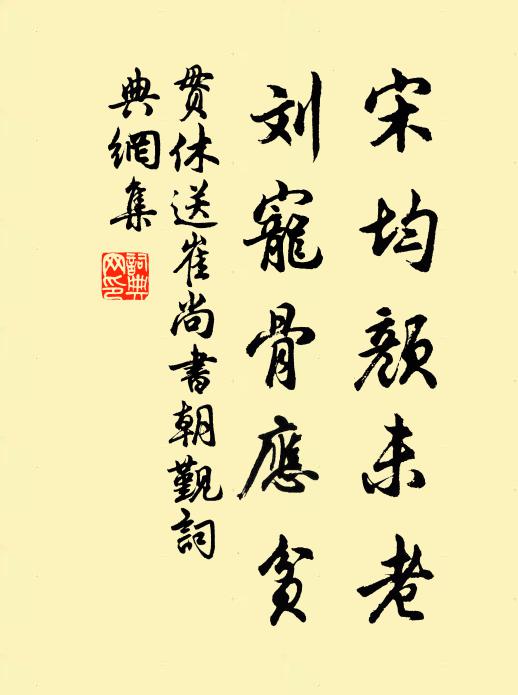 宋均颜未老
刘寵骨應貧
贯休送崔尚書朝覲詞
典網集
詞典
网印